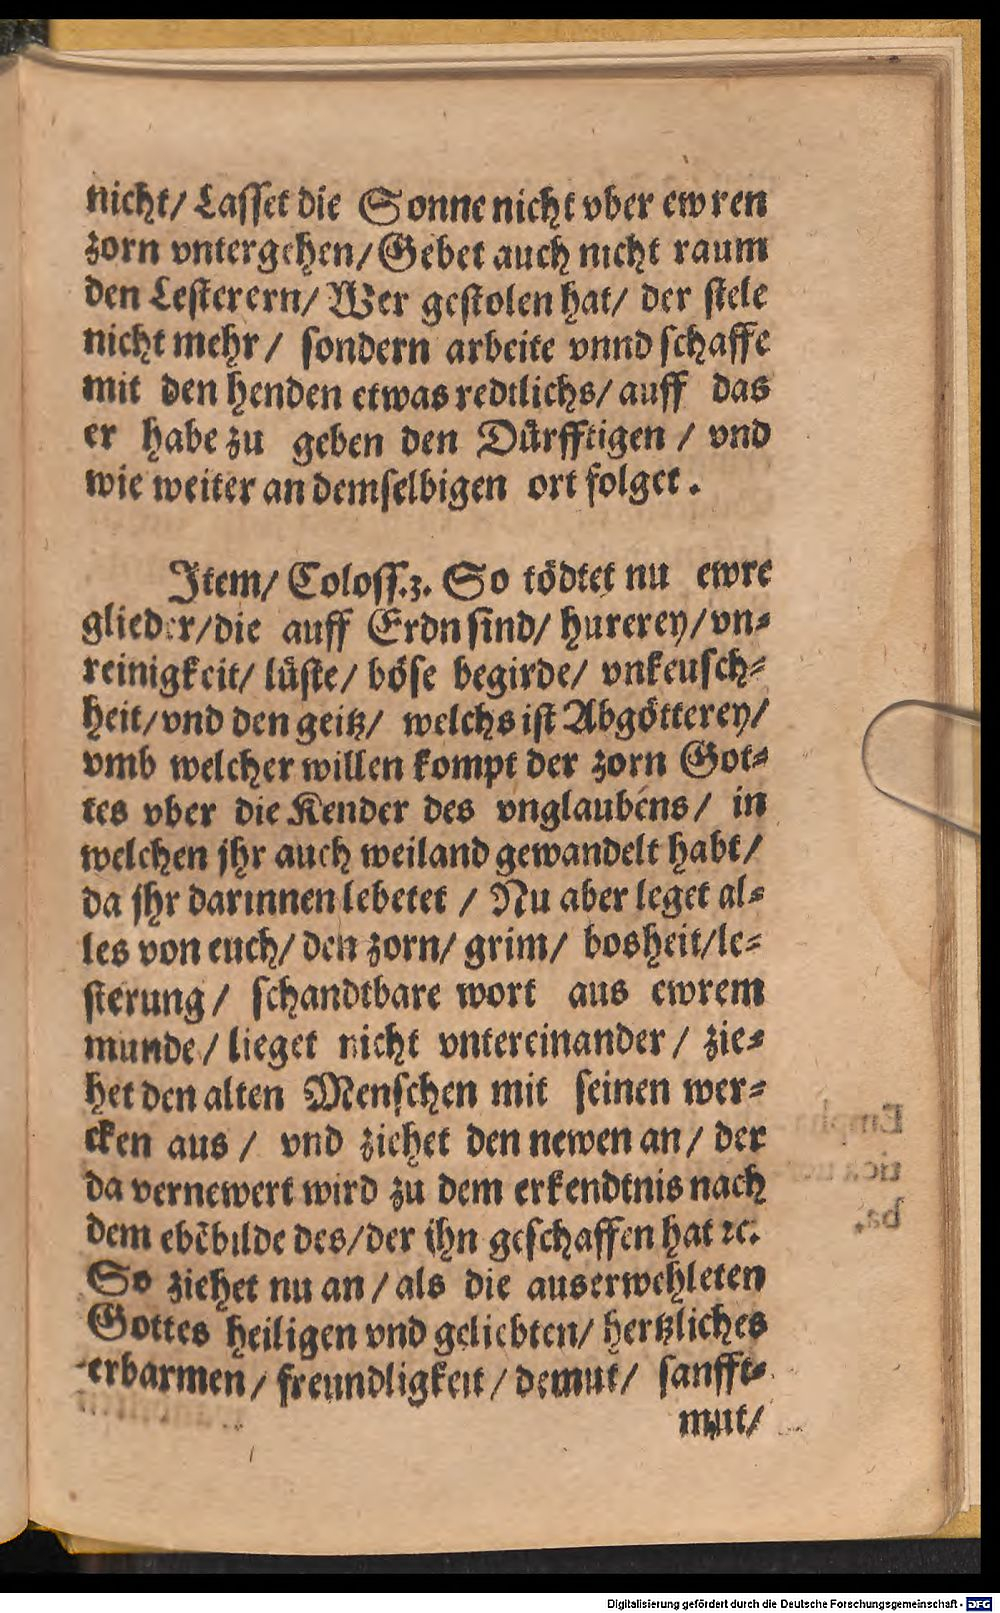 nicht/ Lasset die Sonne nicht vber ewren
zorn vntergehen/ Gebet auch nicht raum
den Lesterern/ Wer gestolen hat/ der stele
nicht mehr/ sondern arbeite vnnd schaffe
mit den henden etwas redtlichs/ auff das
er habe zu geben den Dürfftigen / vnd
wie weiter an demselbigen ort folget.
Item/ Coloss.3. So tödtet nu ewre
glieder/die auff Erdn sind/ hurerey/vn⸗
reinigkeit/ lüste/ böse begirde/ vnkeusch⸗
heit/vnd den geitz/ welchs ist Abgötterey/
vmb welcher willen kompt der zorn Got⸗
tes vber die Kender des vnglaubens/ in
welchen jhr auch weiland gewandelt habt/
da jhr darinnen lebetet / Nu aber leget al⸗
les von euch/ den zorn/ grim/ bosheit/le⸗
sterung/ schandtbare wort aus ewrem
munde/ lieget nicht vntereinander/ zie⸗
het den alten Menschen mit seinen wer⸗
cken aus / vnd ziehet den newen an/ der
da vernewert wird zu dem erkendtnis nach
dem ebẽbilde des/der ihn geschaffen hat ꝛc.
So ziehet nu an/ als die auserwehleten
Gottes heiligen vnd geliebten/ hertzliches
erbarmen/ freundligkeit/ demut/ sanfft⸗
mut/
Digitalisierung gefördert durch die Deutsche Forschungsgemeinschaft - DFG